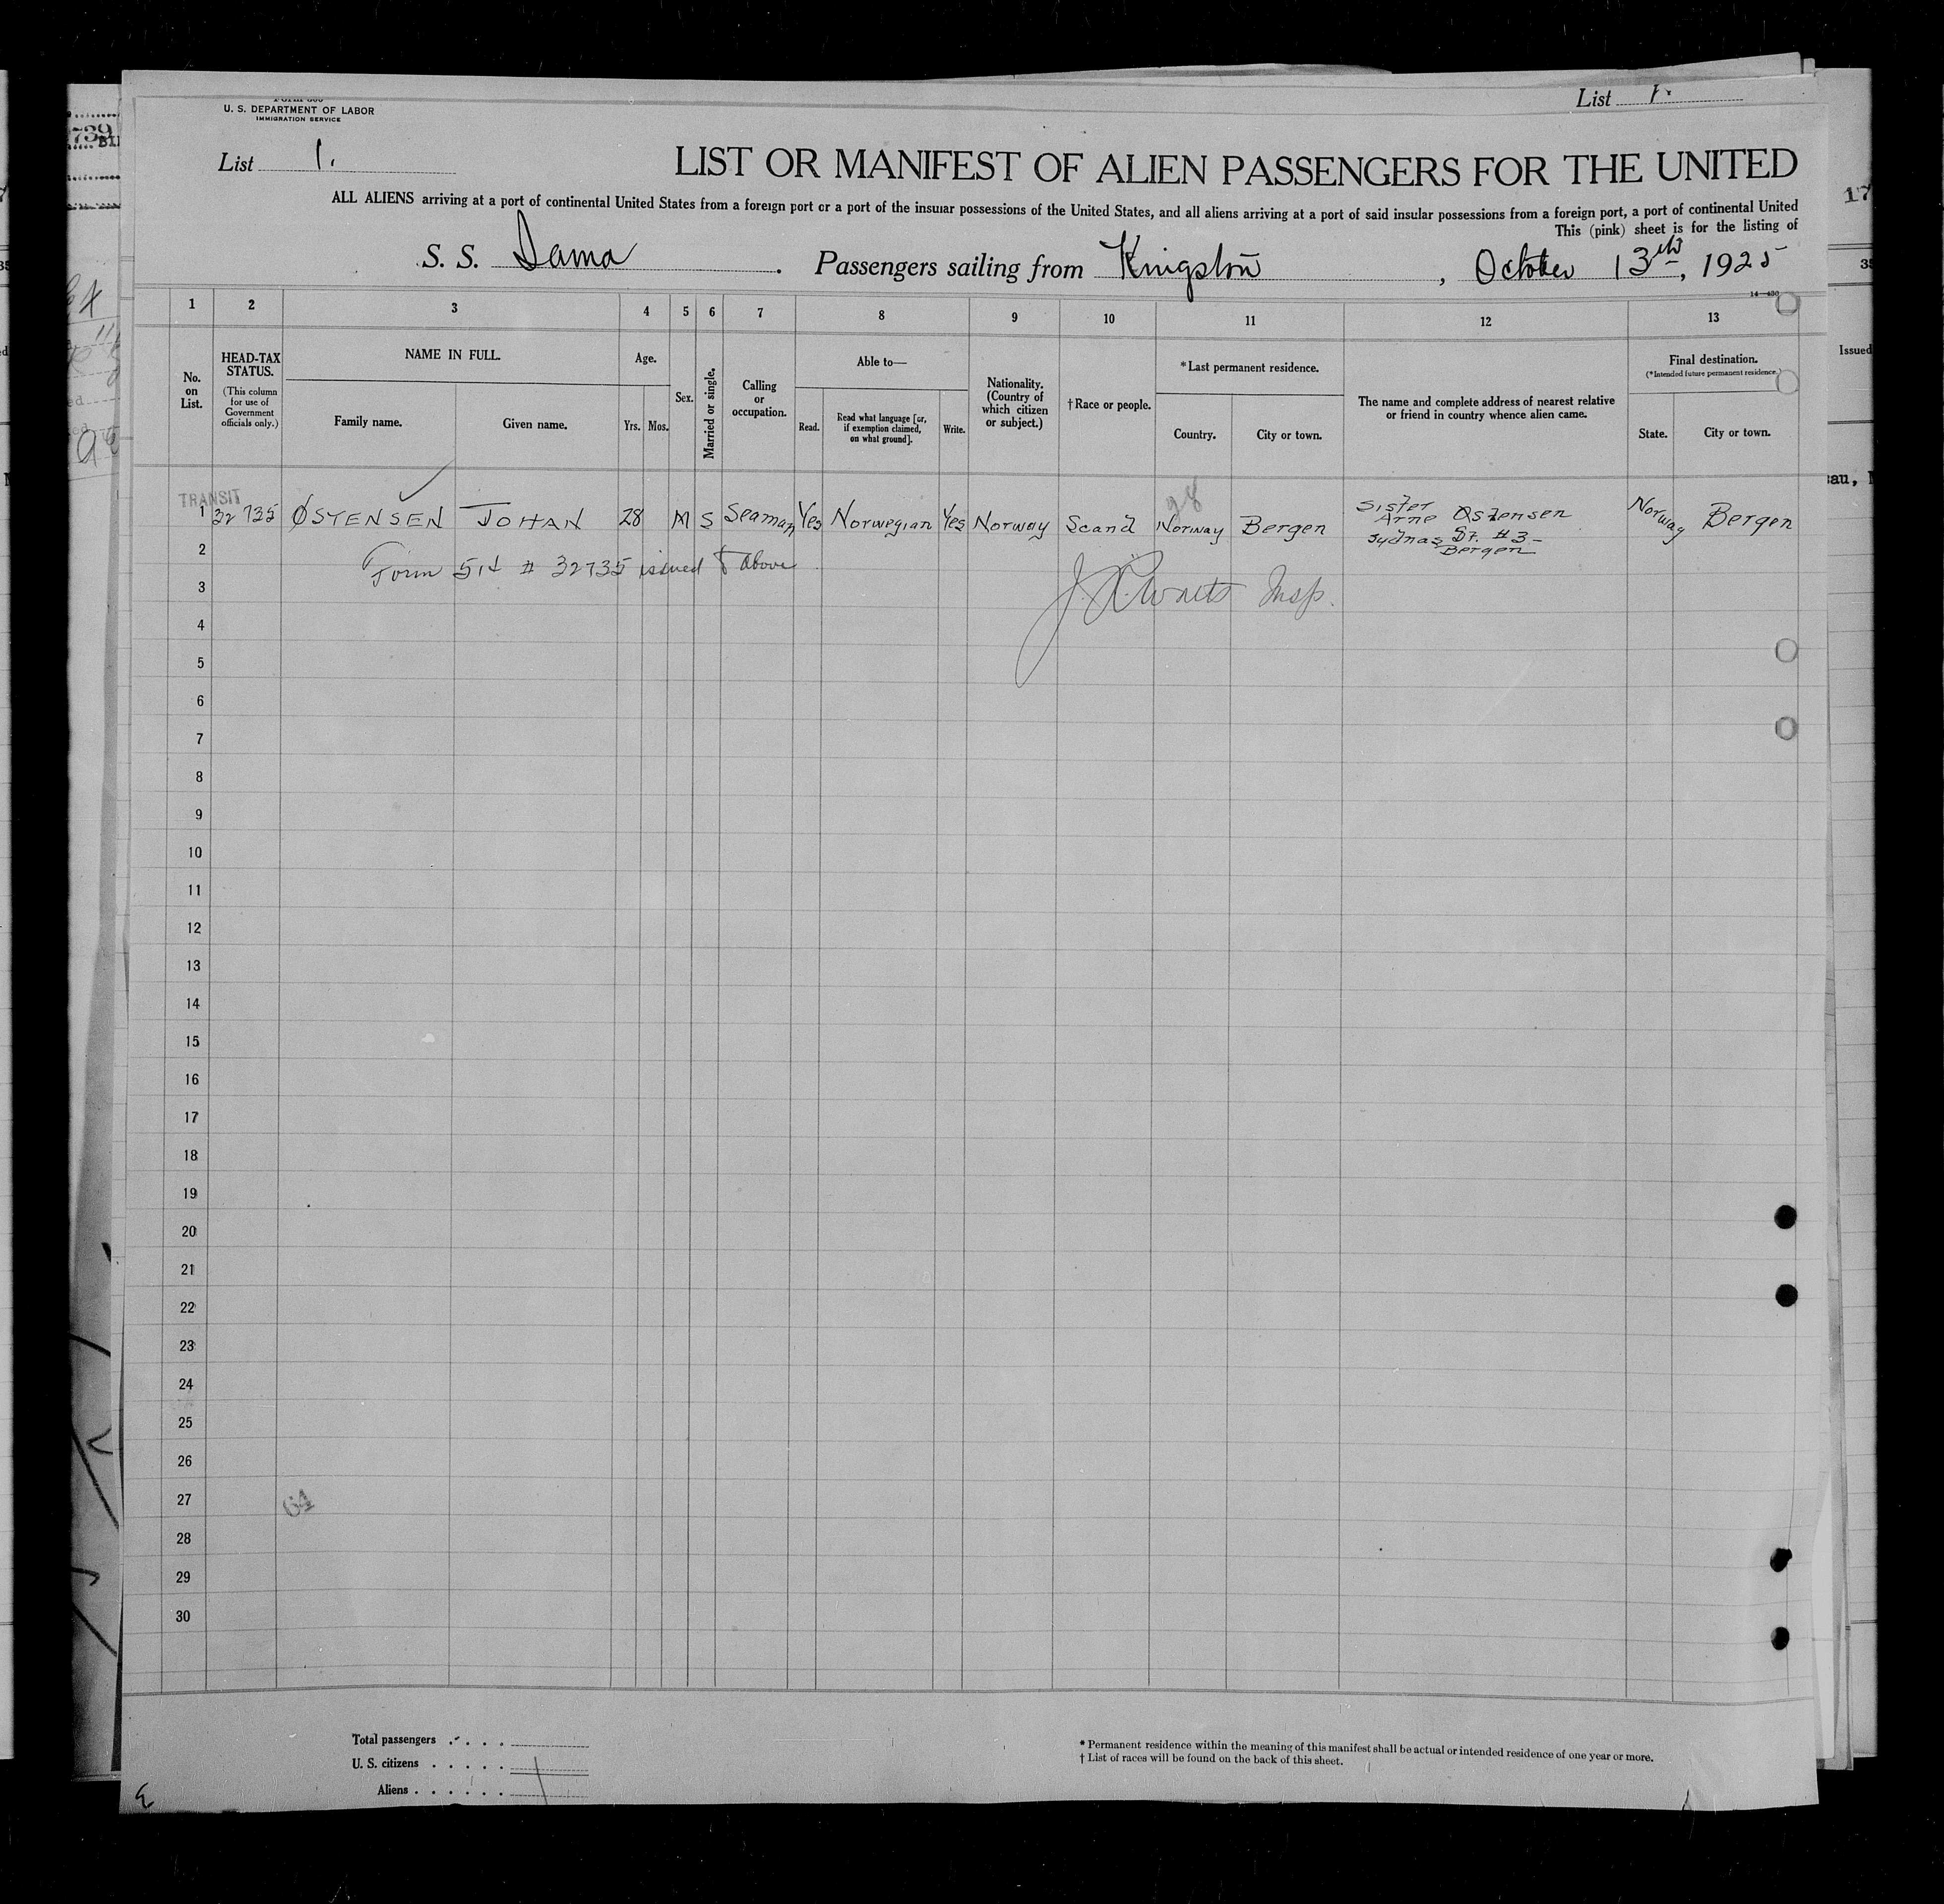 List 1.
U. S. DEPARTMENT OF LABOR
IMMIGRATION SERVICE
List 1.
LIST OR MANIFEST OF ALIEN PASSENGERS FOR THE UNITED
ALL ALIENS arriving at a port of continental United States from a foreign port or a port of the insular possessions of the United States, and all aliens arriving at a port of said insular possessions from a foreign port, a port of continental United
This (pink) sheet is for the listing of
S. S. Sama. Passengers sailing from Kingston, October 13th, 1925
1 2 3 4 5 6 7 8 9 10 11 12 13
No. on List.
HEAD-TAX STATUS.
(This column for use of Government officials only.)
NAME IN FULL.
Family name.
Given name.
Age.
Yrs. Mos.
Sex.
Married or single.
Calling or occupation.
Able to—
Read.
Read what language [or, if exemption claimed, on what ground].
Write.
Nationality. (Country of which citizen or subject.)
†Race or people.
*Last permanent residence.
Country.
City or town.
The name and complete address of nearest relative or friend in country whence alien came.
Final destination.
(*Intended future permanent residence.)
State.
City or town.
TRANSIT
1 32735 ØSTENSEN JOHAN 28 M S Seaman Yes Norwegian Yes Norway Scand Norway Bergen Sister Arne Østensen Sydnas St. #3- Bergen Norway Bergen
2 Form 514 # 32735 issued to above
3 Insp.
4
5
6
7
8
9
10
11
12
13
14
15
16
17
18
19
20
21
22
23
24
25
26
27
28
29
30
Total passengers
U. S. citizens
Aliens
* Permanent residence within the meaning of this manifest shall be actual or intended residence of one year or more.
† List of races will be found on the back of this sheet.